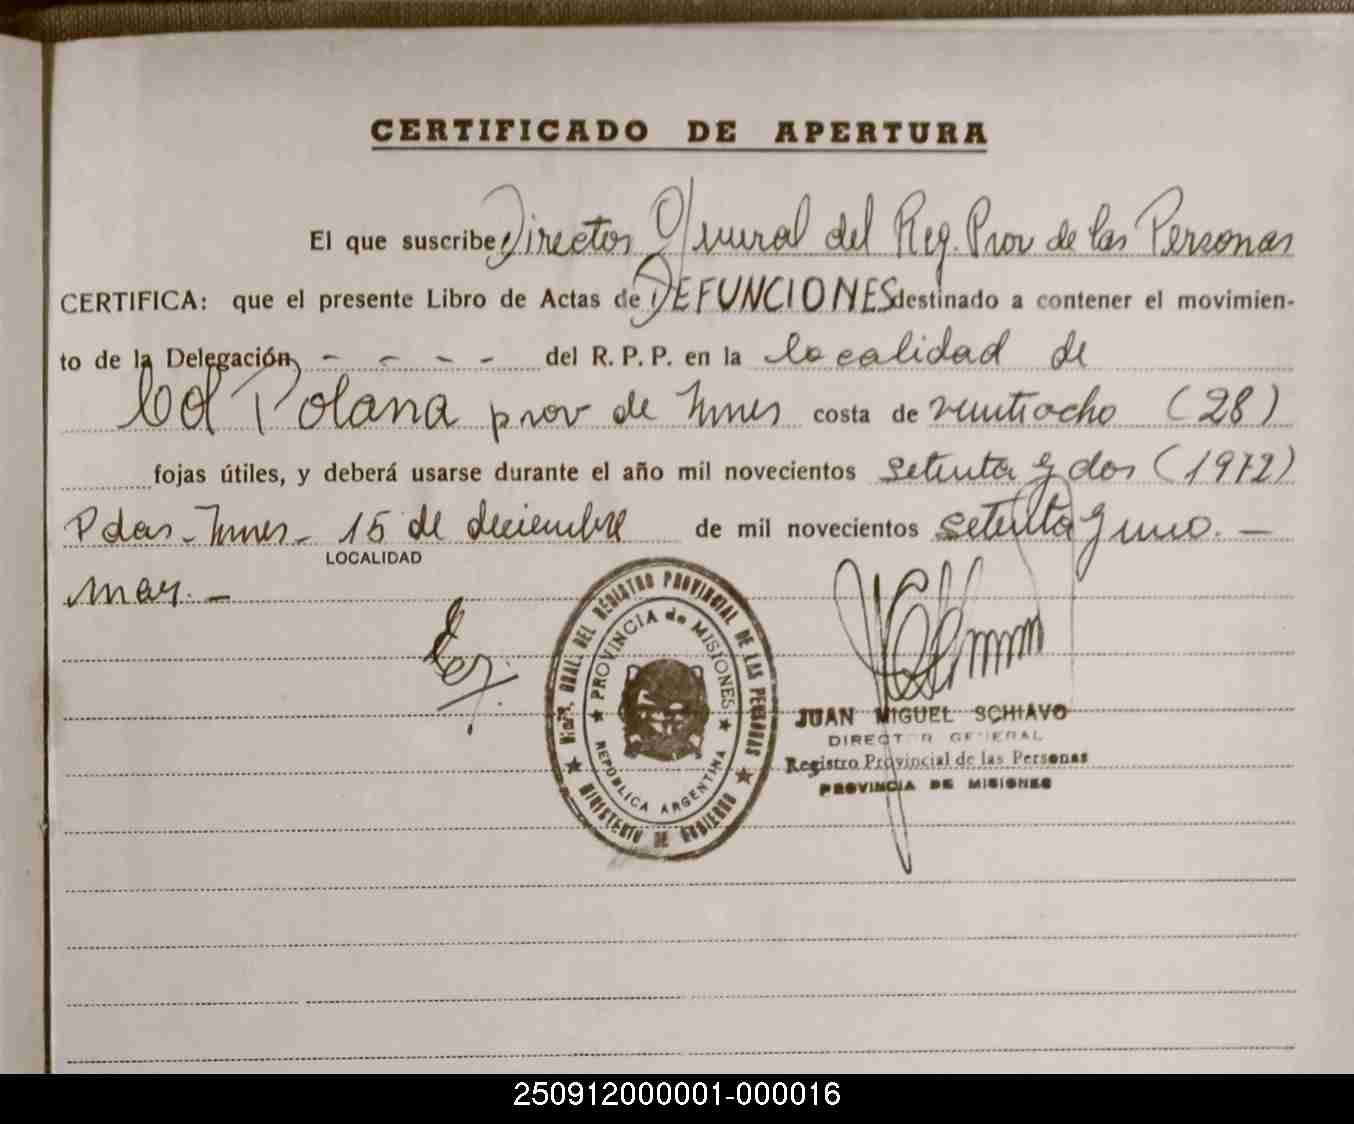 CERTIFICADO DE APERTURA
El que suscribe Director General del Reg. Prov de las Personas
CERTIFICA: que el presente Libro de Actas de DEFUNCIONES destinado a contener el movimien-
to de la Delegación - - - - del R. P. P. en la localidad de
Col Polana prov de Mnes costa de veintiocho (28)
fojas útiles, y deberá usarse durante el año mil novecientos setenta y dos (1972)
Pdas - Mnes - 15 de diciembre de mil novecientos setenta y uno. -
LOCALIDAD
mar. -
DIR. GRAL. DEL REGISTRO PROVINCIAL DE LAS PERSONAS
PROVINCIA de MISIONES
REPÚBLICA ARGENTINA
MINISTERIO DE GOBIERNO
JUAN MIGUEL SCHIAVO
DIRECTOR GENERAL
Registro Provincial de las Personas
PROVINCIA DE MISIONES
250912000001-000016